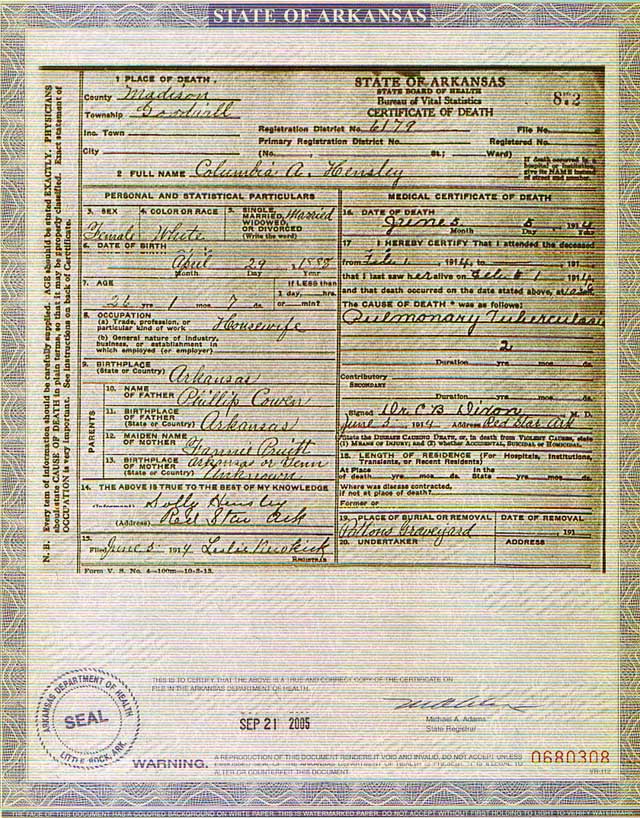 STATE OF ARKANSAS
1 PLACE OF DEATH.
County Madison
Township Goodwill
Inc. Town
City
STATE OF ARKANSAS
STATE BOARD OF HEALTH
Bureau of Vital Statistics
CERTIFICATE OF DEATH
Registration District No. 6179 File No.
Primary Registration District No. Registered No.
(No. St.; Ward)
If death occurred in a hospital or institution give its NAME instead of street and number.
2 FULL NAME Columbia A. Hensley
N. B. Every item of information should be carefully supplied. AGE should be stated EXACTLY. PHYSICIANS
should state CAUSE OF DEATH in plain terms, so that it may be properly classified. Exact statement of
OCCUPATION is very important. See instructions on back of Certificate.
PERSONAL AND STATISTICAL PARTICULARS
3. SEX
Female
4. COLOR OR RACE
White
5. SINGLE
MARRIED, Married
WIDOWED,
OR DIVORCED
(Write the word)
6. DATE OF BIRTH
April 29, 1888
Month Day Year
7. AGE
26 yrs 1 mos 7 ds
If LESS than
1 day,....hrs.
or....min?
8. OCCUPATION
(a) Trade, profession, or
particular kind of work Housewife
(b) General nature of industry,
business, or establishment in
which employed (or employer)
9. BIRTHPLACE
(State or Country) Arkansas
PARENTS
10. NAME
OF FATHER Phillip Cowen
11. BIRTHPLACE
OF FATHER
(State or Country) Arkansas
12. MAIDEN NAME
OF MOTHER Fannie Pruitt
13. BIRTHPLACE
OF MOTHER Arkansas or Tenn
(State or Country) Unknown
14. THE ABOVE IS TRUE TO THE BEST OF MY KNOWLEDGE
(Informant) Solly Hensley
(Address) Red Star Ark
15.
Filed June 5 1914 Leslie
REGISTRAR
Form V. S. No. 4—100m—10-2-13.
MEDICAL CERTIFICATE OF DEATH
16. DATE OF DEATH
June 5 1914
Month Day Year
17 I HEREBY CERTIFY That I attended the deceased
from Feb 1, 1914, to 191
that I last saw her alive on Feb 1 1914
and that death occurred on the date stated above, at
The CAUSE OF DEATH * was as follows:
Pulmonary Tuberculosis
2
Duration yrs. mos. ds.
Contributory
SECONDARY
Duration yrs. mos. ds.
Signed Dr. C B Dixon M. D.
June 5 1914 Address Red Star Ark
*State the DISEASE CAUSING DEATH, or, in death from VIOLENT CAUSES, state
(1) MEANS OF INJURY; and (2) whether ACCIDENTAL, SUICIDAL or HOMICIDAL.
18. LENGTH OF RESIDENCE (For Hospitals, Institutions,
Transients, or Recent Residents)
At Place In the
of death yrs. mos. ds. State yrs. mos. ds.
Where was disease contracted,
if not at place of death?
Former or
19. PLACE OF BURIAL OR REMOVAL
Graveyard
DATE OF REMOVAL
191
20. UNDERTAKER
ADDRESS
ARKANSAS DEPARTMENT OF HEALTH
SEAL
LITTLE ROCK, ARK.
THIS IS TO CERTIFY THAT THE ABOVE IS A TRUE AND CORRECT COPY OF THE CERTIFICATE ON
FILE IN THE ARKANSAS DEPARTMENT OF HEALTH.
SEP 21 2005
Michael A. Adams
State Registrar
WARNING:
A REPRODUCTION OF THIS DOCUMENT RENDERS IT VOID AND INVALID. DO NOT ACCEPT UNLESS
EMBOSSED SEAL OF THE ARKANSAS DEPARTMENT OF HEALTH IS PRESENT. IT IS ILLEGAL TO
ALTER OR COUNTERFEIT THIS DOCUMENT.
0680308
VR-112
THE FACE OF THIS DOCUMENT HAS A COLORED BACKGROUND ON WHITE PAPER. THIS IS WATERMARKED PAPER. DO NOT ACCEPT WITHOUT FIRST HOLDING TO LIGHT TO VERIFY WATERMARK.